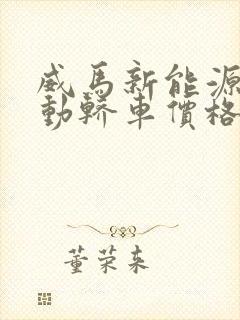 威馬新能源
動轎車價格
董荣来